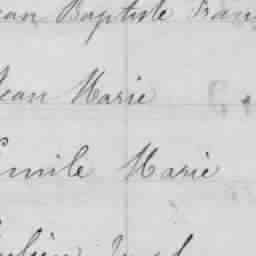 ean Baptiste Fran
Jean Marie
Emile Marie